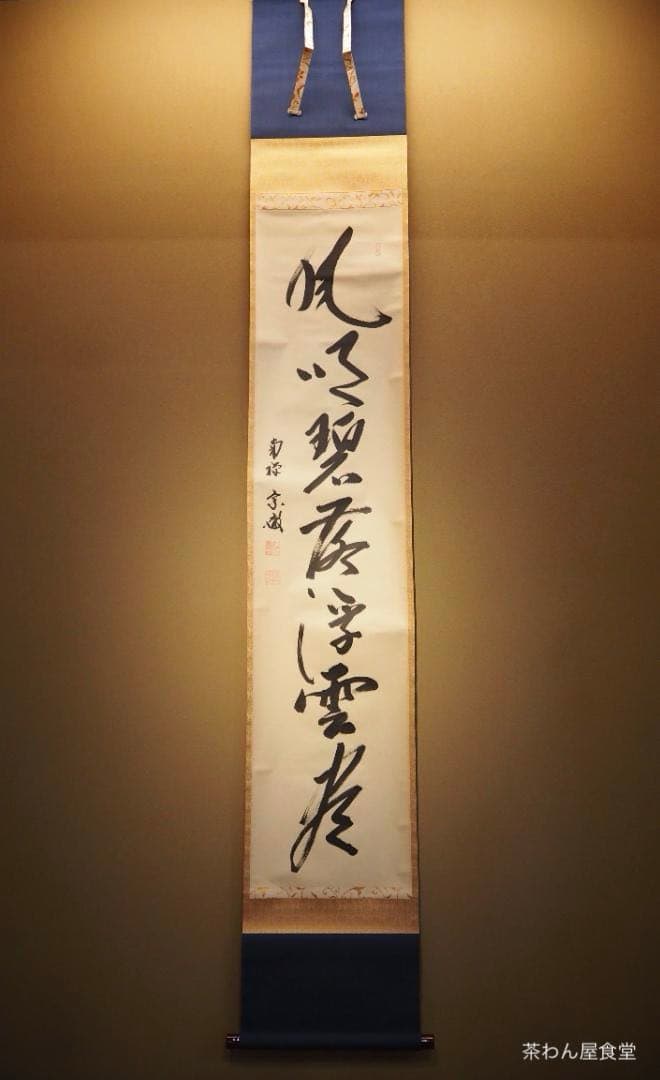 風吹碧落浮雲尽
南禅 宗徹
茶わん屋食堂